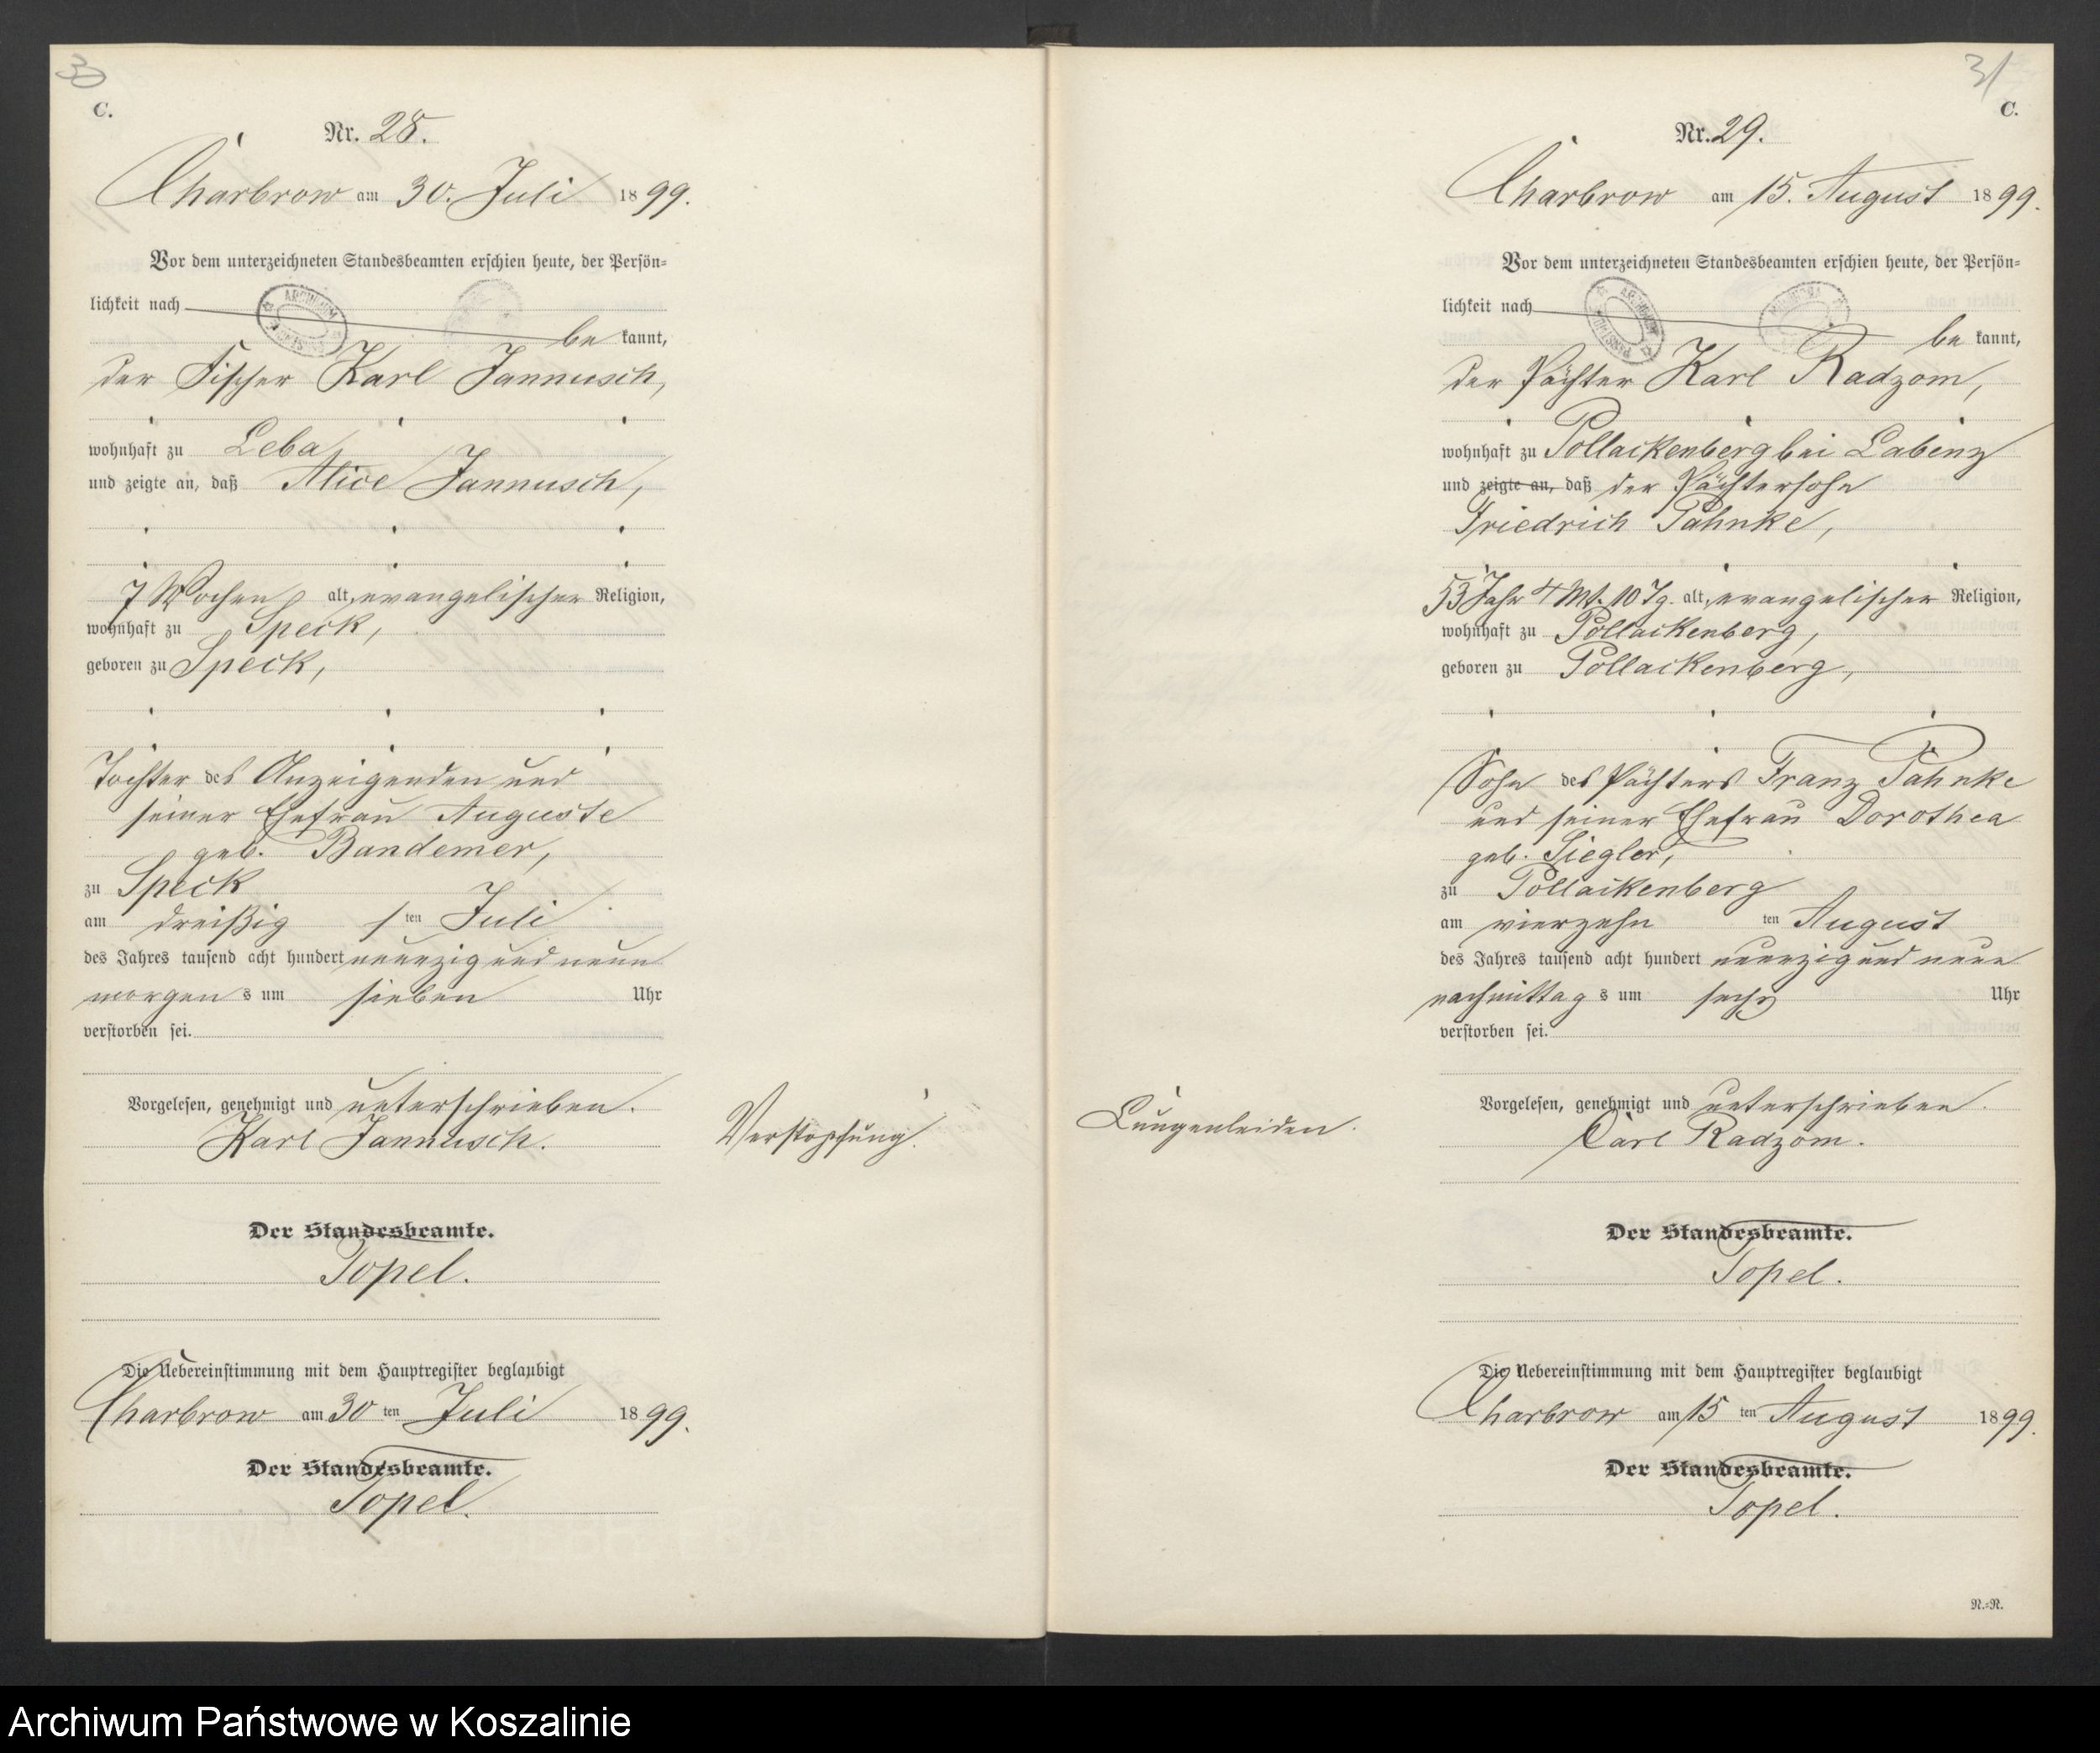 30
C.
Nr. 28.
Charbrow am 30. Juli 1899.
Vor dem unterzeichneten Standesbeamten erschien heute, der Persön-
lichkeit nach
be kannt,
der Fischer Karl Jannusch,
wohnhaft zu Leba,
und zeigte an, daß Alice Jannusch,
7 Wochen alt, evangelischer Religion,
wohnhaft zu Speck,
geboren zu Speck,
Tochter des Anzeigenden und
seiner Ehefrau Auguste
geb. Bandemer,
zu Speck
am dreißig sten Juli
des Jahres tausend acht hundert neunzig und neun
morgen s um sieben Uhr
verstorben sei.
Vorgelesen, genehmigt und unterschrieben.
Karl Jannusch.
Verstopfung.
Der Standesbeamte.
Topel.
Die Uebereinstimmung mit dem Hauptregister beglaubigt
Charbrow am 30 ten Juli 1899.
Der Standesbeamte.
Topel.
31
C.
Nr. 29.
Charbrow am 15. August 1899.
Vor dem unterzeichneten Standesbeamten erschien heute, der Persön-
lichkeit nach
be kannt,
der Pächter Karl Radzom,
wohnhaft zu Pollackenberg bei Labenz
und zeigte an, daß der Pächtersohn
Friedrich Pahnke,
53 Jahr 4 Mt. 10 Tg. alt, evangelischer Religion,
wohnhaft zu Pollackenberg,
geboren zu Pollackenberg,
Sohn des Pächters Franz Pahnke
und seiner Ehefrau Dorothea
geb. Siegler,
zu Pollackenberg
am vierzehn ten August
des Jahres tausend acht hundert neunzig und neun
nachmittag s um sechs Uhr
verstorben sei.
Vorgelesen, genehmigt und unterschrieben.
Carl Radzom.
Lungenleiden.
Der Standesbeamte.
Topel.
Die Uebereinstimmung mit dem Hauptregister beglaubigt
Charbrow am 15 ten August 1899.
Der Standesbeamte.
Topel.
N.=N.
Archiwum Państwowe w Koszalinie